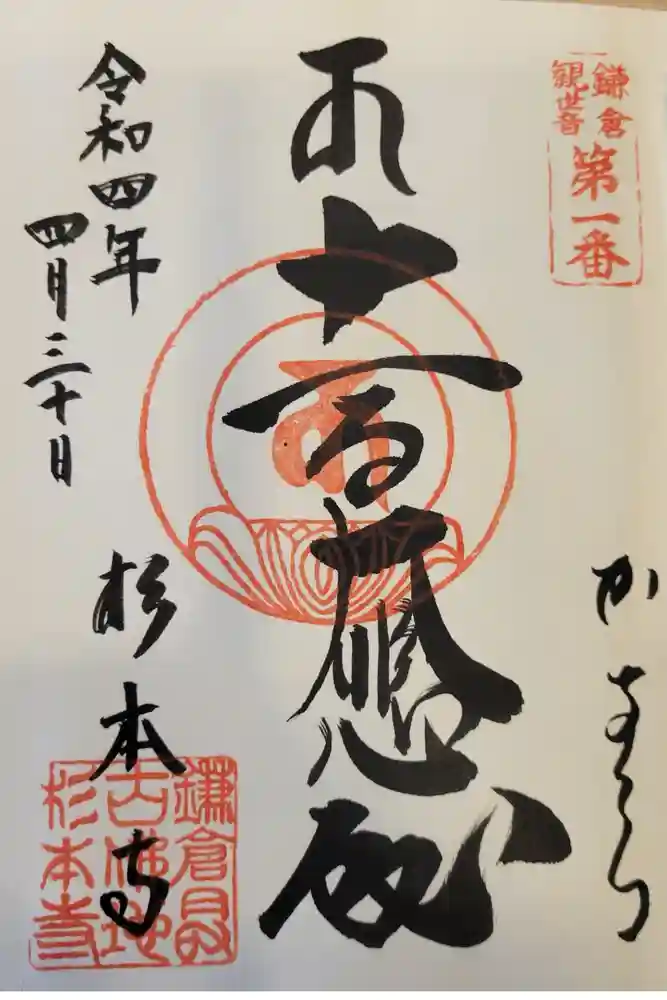 鎌倉
観世音
第一番
かまくら
十一面
殿
令和四年
四月三十日
杉本寺
鎌倉最
古佛地
杉本寺